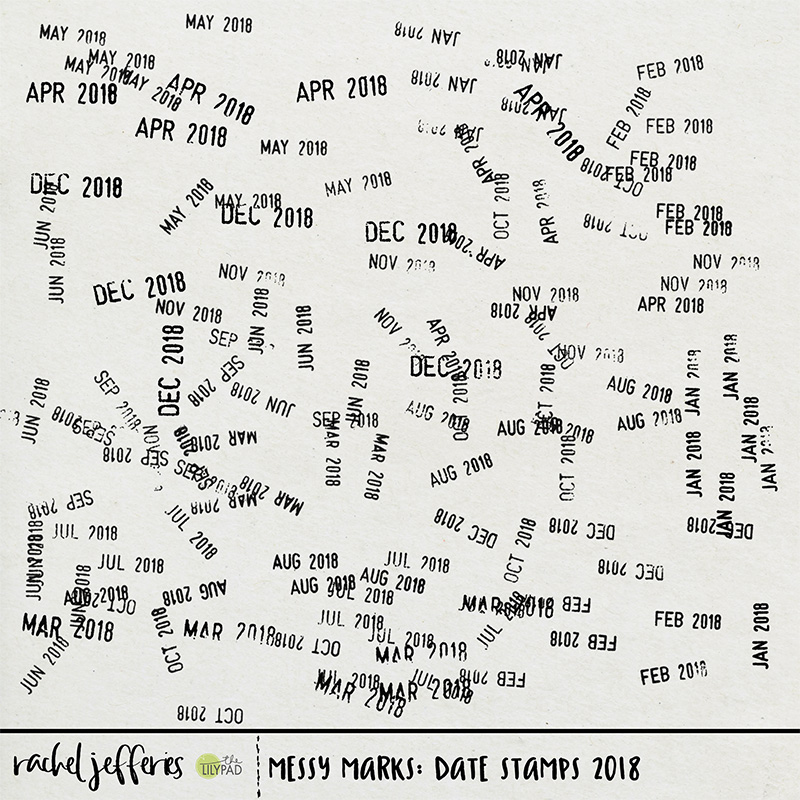 MAY 2018
MAY 2018
JAN 2018
JAN 2018
MAY 2018
MAY 2018
MAY 2018
FEB 2018
JAN 2018
APR 2018
APR 2018
APR 2018
APR 2018
APR 2018
FEB 2018
FEB 2018
MAY 2018
FEB 2018
FEB 2018
DEC 2018
MAY 2018
MAY 2018
MAY 2018
DEC 2018
DEC 2018
APR 2018
OCT 2018
APR 2018
OCT 2018
OCT 2018
FEB 2018
FEB 2018
JUN 2018
JUN 2018
NOV 2018
NOV 2018
NOV 2018
NOV 2018
DEC 2018
NOV 2018
NOV 2018
APR 2018
APR 2018
JUN 2018
JUN 2018
DEC 2018
SEP 2018
NOV 2018
APR 2018
DEC 2018
NOV 2018
JAN 2018
JAN 2018
SEP 2018
SEP 2018
JUN 2018
JUN 2018
JUN 2018
SEP 2018
AUG 2018
OCT 2018
OCT 2018
AUG 2018
AUG 2018
AUG 2018
JAN 2018
JAN 2018
JAN 2018
MAR 2018
MAR 2018
MAR 2018
SEP 2018
MAR 2018
AUG 2018
OCT 2018
JAN 2018
SEP 2018
JUL 2018
DEC 2018
DEC 2018
DEC 2018
JUL 2018
JUL 2018
AUG 2018
AUG 2018
AUG 2018
JUL 2018
JUL 2018
OCT 2018
DEC 2018
AUG 2018
OCT 2018
MAR 2018
MAR 2018
OCT 2018
OCT 2018
JUL 2018
JUL 2018
MAR 2018
JUL 2018
MAR 2018
FEB 2018
FEB 2018
FEB 2018
JAN 2018
JUN 2018
MAR 2018
MAR 2018
FEB 2018
FEB 2018
OCT 2018
rachel jefferies
the
LILYPAD
MESSY MARKS: DATE STAMPS 2018